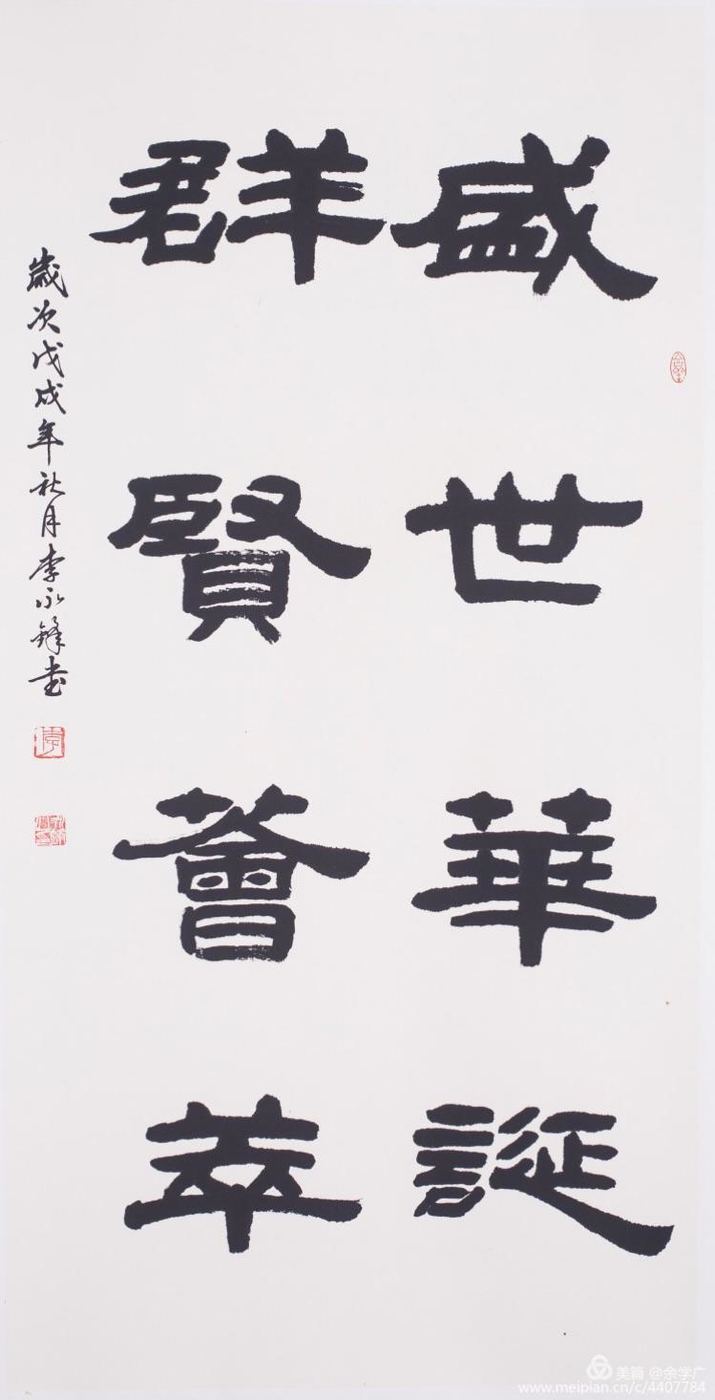 盛世華誕
群賢薈萃
歲次戊戌年秋月李永鋒书
美篇 @余学广
www.meipian.cn/c/4407784